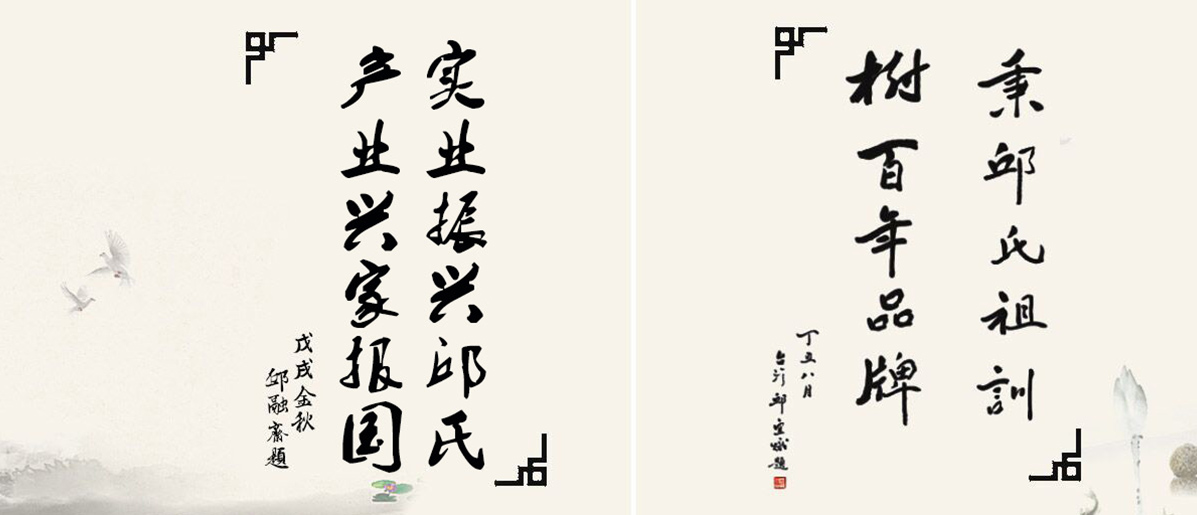 实业振兴邱氏
产业兴家报国
戊戌金秋
邱融斋题
秉邱氏祖训
树百年品牌
丁丑八月
台湾邱
题